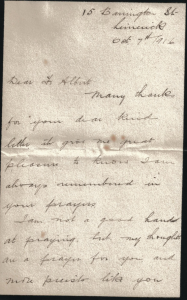 15 Barrington St
Limerick
Oct 7th
Dear Fr Albert
Many thanks
for your dear kind
letter it gives me great
pleasure to know I am
always remembered in
your prayers
I am not a good hand
at praying, but my thoughts
as a prayer for you and
more priests like you